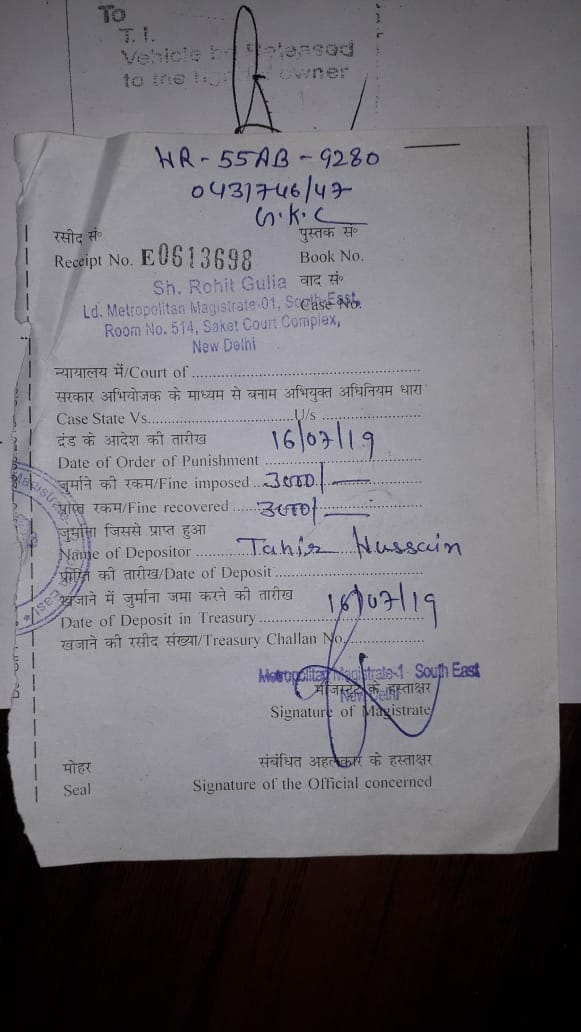 To
T.I.
Vehicle be Released
to the owner
HR-55AB-9280
0431746/47
G.K.C
रसीद सं० पुस्तक सं०
Receipt No. E0613698 Book No.
Sh. Rohit Gulia वाद सं०
Ld. Metropolitan Magistrate-01, South-East, Case No.
Room No. 514, Saket Court Complex,
New Delhi
न्यायालय में/Court of
सरकार अभियोजक के माध्यम से बनाम अभियुक्त अधिनियम धारा
Case State Vs. U/s
दंड के आदेश की तारीख
Date of Order of Punishment 16/07/19
जुर्माने की रकम/Fine imposed 3000/-
प्राप्त रकम/Fine recovered 3000/-
जुर्माना जिससे प्राप्त हुआ
Name of Depositor Tahir Hussain
प्राप्ति की तारीख/Date of Deposit
खजाने में जुर्माना जमा करने की तारीख
Date of Deposit in Treasury 16/07/19
खजाने की रसीद संख्या/Treasury Challan No.
Metropolitan Magistrate-1 South East
New Delhi
मजिस्ट्रेट के हस्ताक्षर
Signature of Magistrate
मोहर संबंधित अहलकार के हस्ताक्षर
Seal Signature of the Official concerned